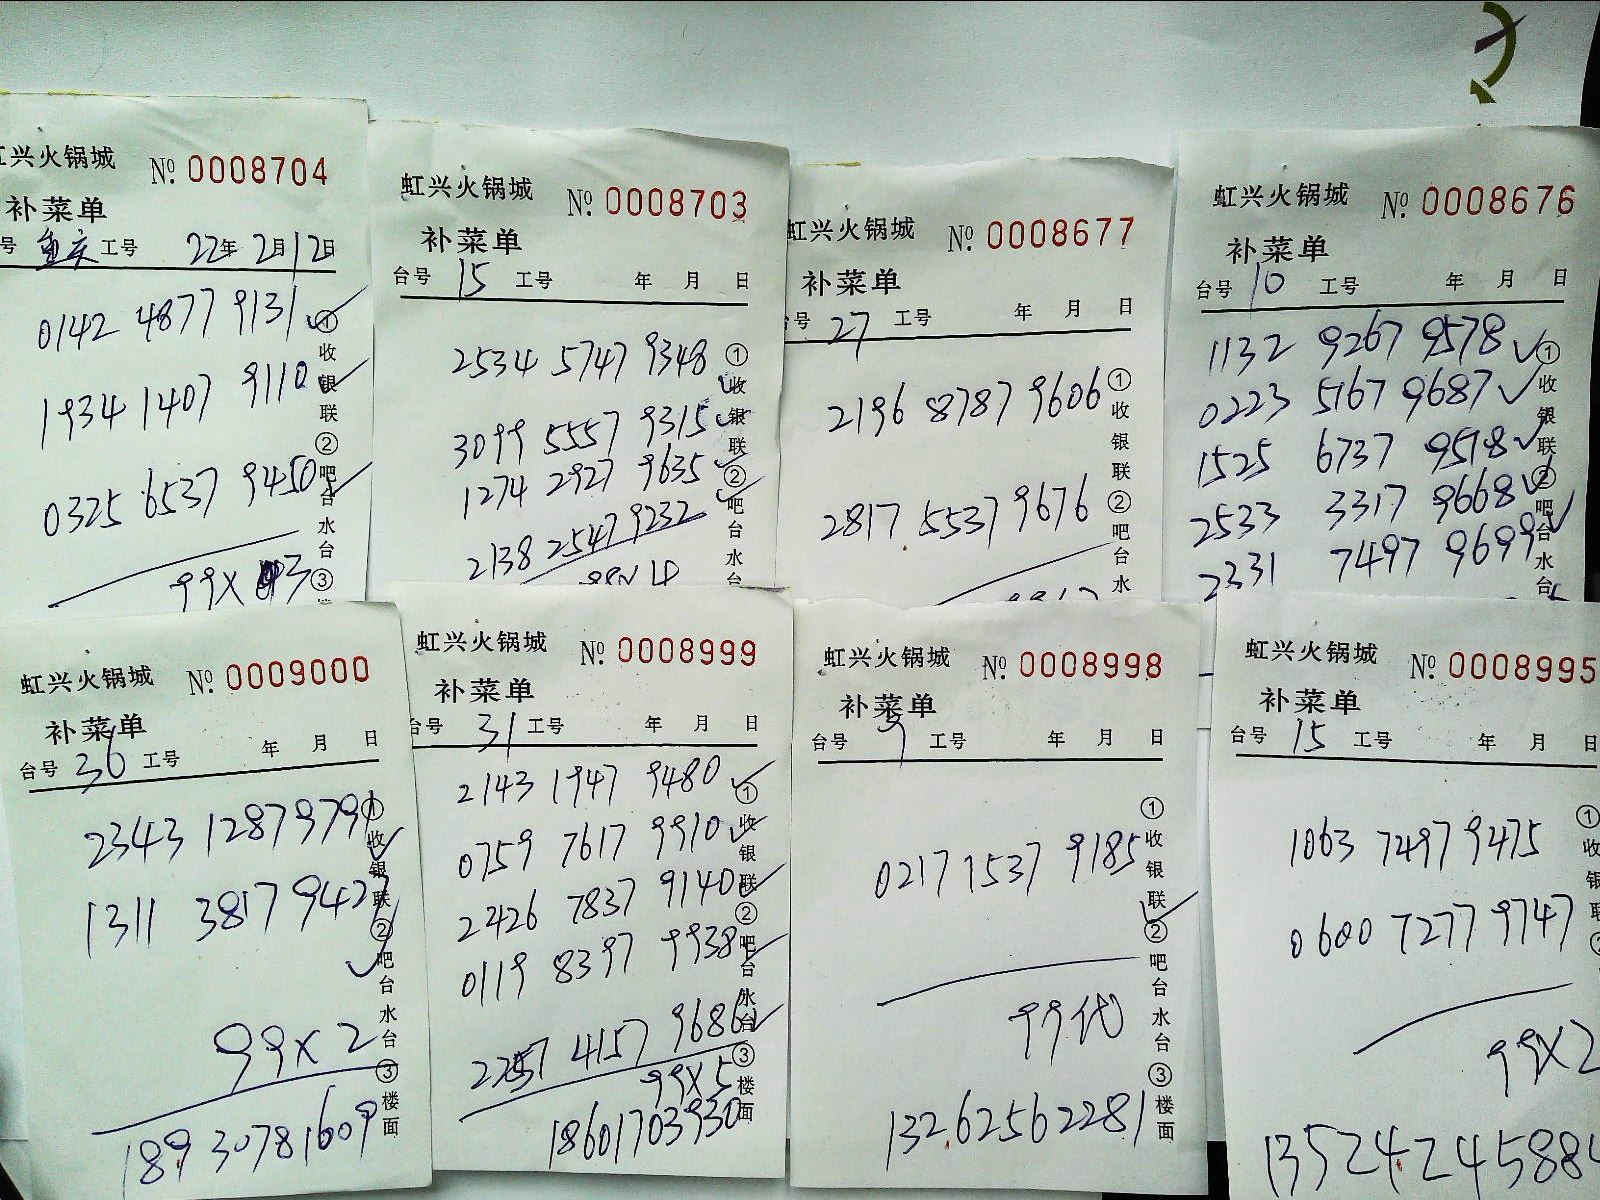 虹兴火锅城 No. 0008704
补菜单
号 重庆 工号 22年2月12日
0142 4877 9131
1934 1407 9110
0325 6537 9450
99X 3
①收银联②吧台水台③
虹兴火锅城 No. 0008703
补菜单
台号 15 工号 年 月 日
2534 5747 9348
3099 5557 9315
1274 2927 9635
2138 2547 9232
99X4
①收银联②吧台水台
虹兴火锅城 No. 0008677
补菜单
台号 27 工号 年 月 日
2196 8787 9606
2817 5537 9676
①收银联②吧台水
虹兴火锅城 No. 0008676
补菜单
台号 10 工号 年 月 日
1132 9267 9578
0223 5167 9687
1525 6737 9518
2533 3317 9668
2331 7497 9699
①收银联②吧台水台
虹兴火锅城 No. 0009000
补菜单
台号 36 工号 年 月 日
2343 1287 9791
1311 3817 9427
99X2
18930781609
①收银联②吧台水台③楼面
虹兴火锅城 No. 0008999
补菜单
台号 31 工号 年 月 日
2143 1947 9480
0759 7617 9910
2426 7837 9140
0119 8397 9938
2257 4157 9686
99X5
18601703930
①收银联②吧台水台③楼面
虹兴火锅城 No. 0008998
补菜单
台号 9 工号 年 月 日
0217 1537 9185
99代
13262562281
①收银联②吧台水台③楼面
虹兴火锅城 No. 0008995
补菜单
台号 15 工号 年 月 日
1063 7497 9475
0600 7277 9747
99X2
1352424588
①收银联②